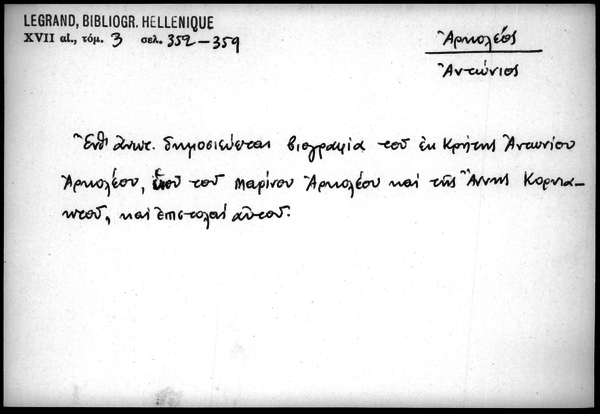 LEGRAND, BIBLIOGR. HELLENIQUE
XVII αἰ., τόμ. 3 σελ. 352-359
Ἀρκολέος
Ἀντώνιος
Ἔνθ' ἀνωτ. δημοσιεύεται βιογραφία τοῦ ἐκ Κρήτης Ἀντωνίου
Ἀρκολέου, υἱοῦ τοῦ Μαρίνου Ἀρκολέου καὶ τῆς Ἄννης Κορνια-
κτοῦ, καὶ ἐπιστολαὶ αὐτοῦ.